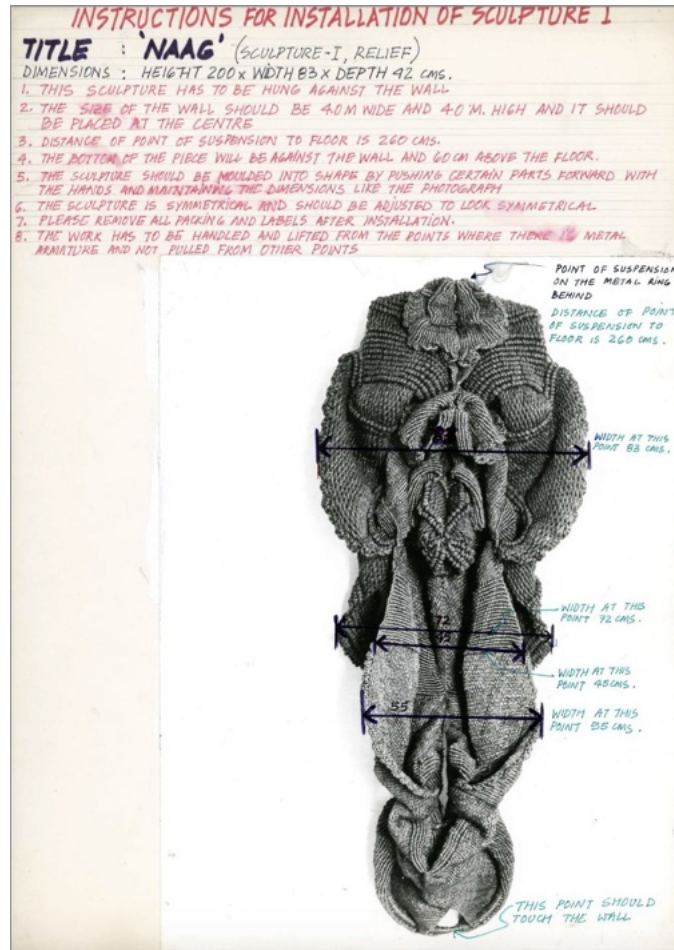 INSTRUCTIONS FOR INSTALLATION OF SCULPTURE 1
TITLE : 'NAAG' (SCULPTURE-I, RELIEF)
DIMENSIONS : HEIGHT 200 x WIDTH 83 x DEPTH 42 CMS.
1. THIS SCULPTURE HAS TO BE HUNG AGAINST THE WALL
2. THE SIZE OF THE WALL SHOULD BE 4.0M WIDE AND 4.0'M. HIGH AND IT SHOULD
BE PLACED AT THE CENTRE
3. DISTANCE OF POINT OF SUSPENSION TO FLOOR IS 260 CMS.
4. THE BOTTOM OF THE PIECE WILL BE AGAINST THE WALL AND 60 CM ABOVE THE FLOOR.
5. THE SCULPTURE SHOULD BE MOULDED INTO SHAPE BY PUSHING CERTAIN PARTS FORWARD WITH
THE HANDS AND MAINTAINING THE DIMENSIONS LIKE THE PHOTOGRAPH
6. THE SCULPTURE IS SYMMETRICAL AND SHOULD BE ADJUSTED TO LOOK SYMMETRICAL
7. PLEASE REMOVE ALL PACKING AND LABELS AFTER INSTALLATION.
8. THE WORK HAS TO BE HANDLED AND LIFTED FROM THE POINTS WHERE THERE IS METAL
ARMATURE AND NOT PULLED FROM OTHER POINTS
POINT OF SUSPENSION
ON THE METAL RING
BEHIND
DISTANCE OF POINT
OF SUSPENSION TO
FLOOR IS 260 CMS.
83
WIDTH AT THIS
POINT 83 CMS.
72
WIDTH AT THIS
POINT 72 CMS.
45
WIDTH AT THIS
POINT 45 CMS.
55
WIDTH AT THIS
POINT 55 CMS.
THIS POINT SHOULD
TOUCH THE WALL